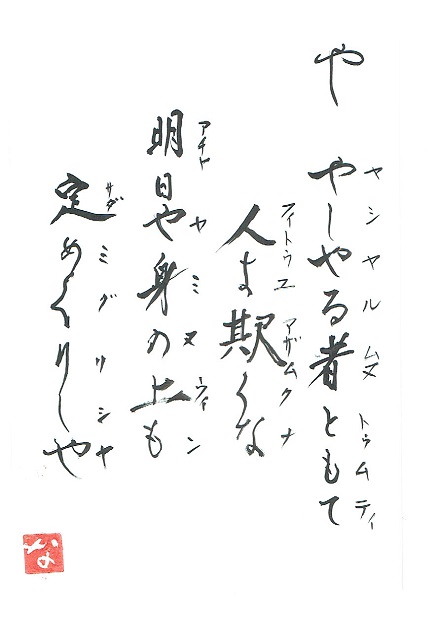 や
やしやる者ともて
ヤシヤルムヌ トゥムティ
人よ欺くな
フィトゥユ アザムクナ
明日や身の上も
アチャ ヤ ミヌ ウィン
定めぐりしや
サダミグリシャ